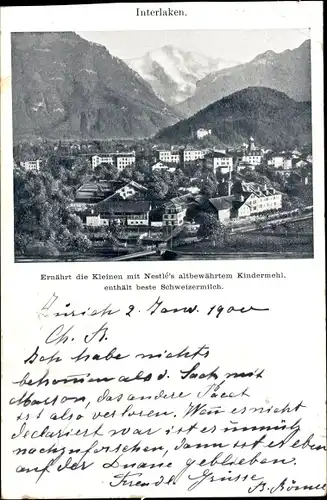 Interlaken.
Ernährt die Kleinen mit Nestlé's altbewährtem Kindermehl.
enthält beste Schweizermilch.
Zürich 2. Janv. 1900
Ch. A.
Ich habe nichts
bekommen als d. Sack mit
das andere Pacet
ist also verloren. Wenn es nicht
declariert war ist es unnütz
nachzuforschen, dann ist es eben
auf der Duane geblieben.
Freundl. Grüsse